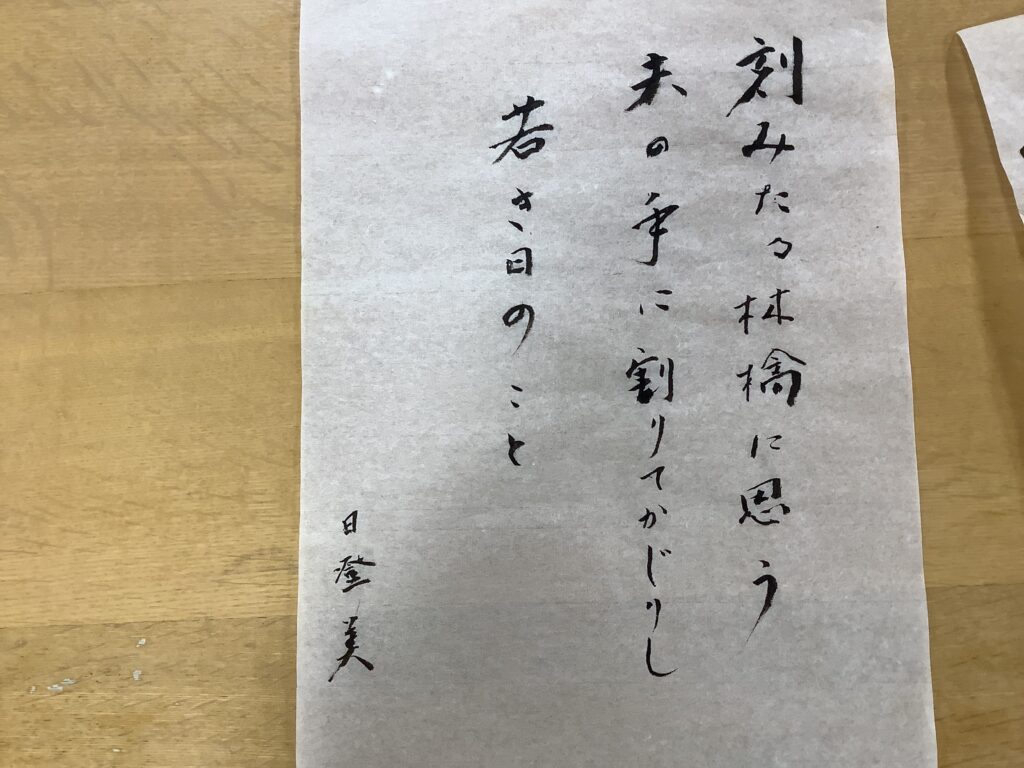 刻みたる林檎に思う
夫の手に割りてかじりし
若き日のこと
日登美